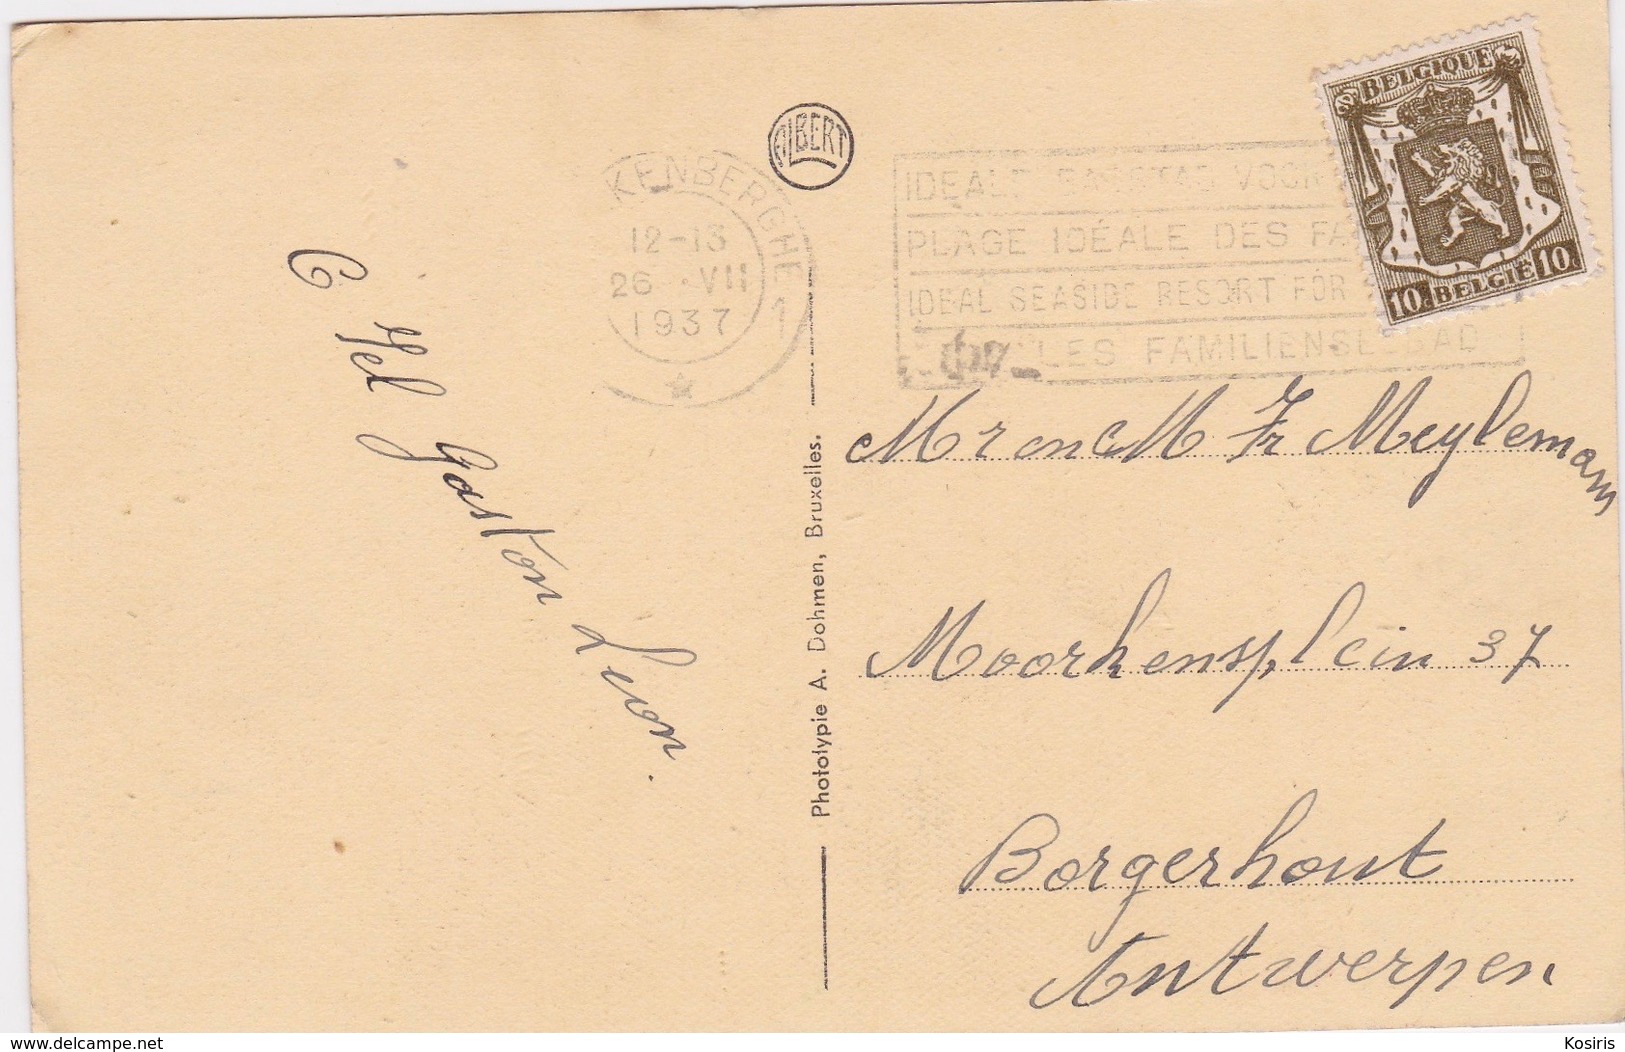 BELGIQUE
10 BELGIË 10
ALBERT
KENBERGHE 1
12-13
26 VII
1937
IDEALE VOOR
PLAGE IDÉALE DES FA
IDEAL SEASIDE RESORT FOR
LES FAMILIENSEEBAD
Mr en M Fr Meylemans
Moorkensplein 37
Borgerhout
Antwerpen
Gaston Leon.
Phototypie A. Dohmen, Bruxelles.
www.delcampe.net
Kosiris